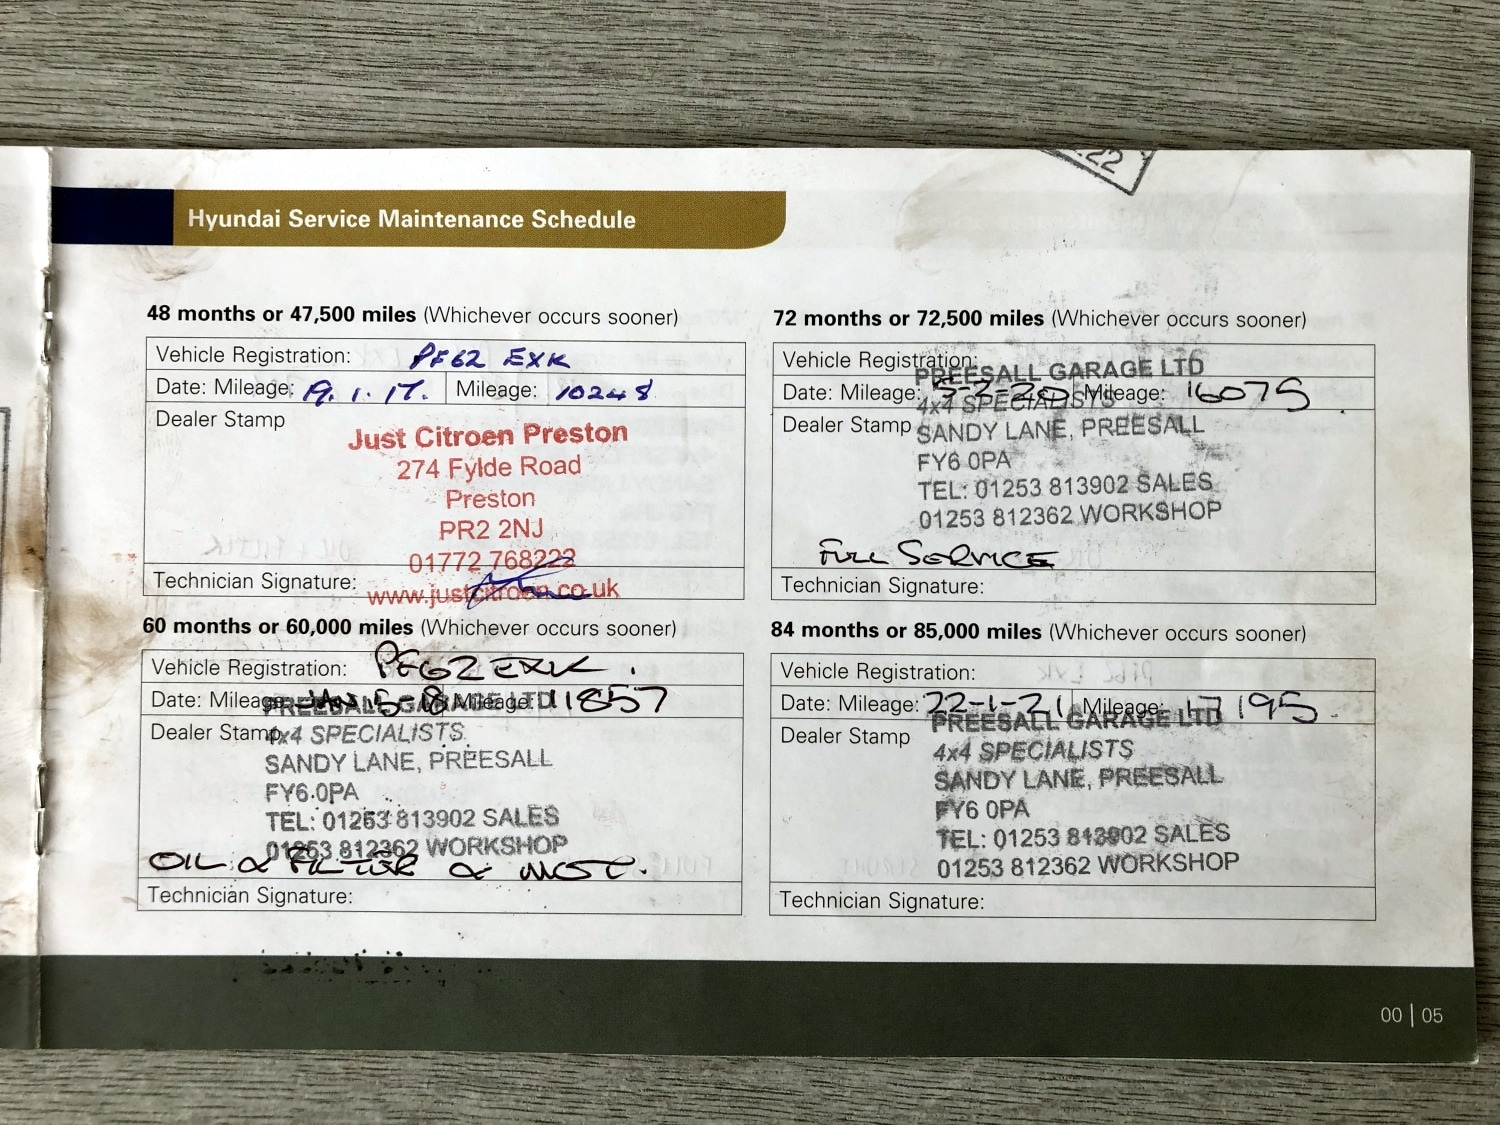 .22
Hyundai Service Maintenance Schedule
48 months or 47,500 miles (Whichever occurs sooner)
Vehicle Registration: PF62 EXK
Date: Mileage: 19.1.17. Mileage: 10248
Dealer Stamp
Just Citroen Preston
274 Fylde Road
Preston
PR2 2NJ
01772 768222
Technician Signature:
www.justcitroen.co.uk
60 months or 60,000 miles (Whichever occurs sooner)
Vehicle Registration: PF62 EXK.
Date: Mileage: Mileage: 11857
PREESALL GARAGE LTD
Dealer Stamp
4x4 SPECIALISTS
SANDY LANE, PREESALL
FY6 0PA
TEL: 01253 813902 SALES
01253 812362 WORKSHOP
OIL & FILTER & MOT.
Technician Signature:
72 months or 72,500 miles (Whichever occurs sooner)
Vehicle Registration:
PREESALL GARAGE LTD
Date: Mileage: Mileage: 16075
4x4 SPECIALISTS
Dealer Stamp
SANDY LANE, PREESALL
FY6 0PA
TEL: 01253 813902 SALES
01253 812362 WORKSHOP
FULL SERVICE
Technician Signature:
84 months or 85,000 miles (Whichever occurs sooner)
Vehicle Registration:
Date: Mileage: 22-1-21 Mileage: 17195.
PREESALL GARAGE LTD
Dealer Stamp
4x4 SPECIALISTS
SANDY LANE, PREESALL
FY6 0PA
TEL: 01253 813902 SALES
01253 812362 WORKSHOP
Technician Signature:
00 | 05